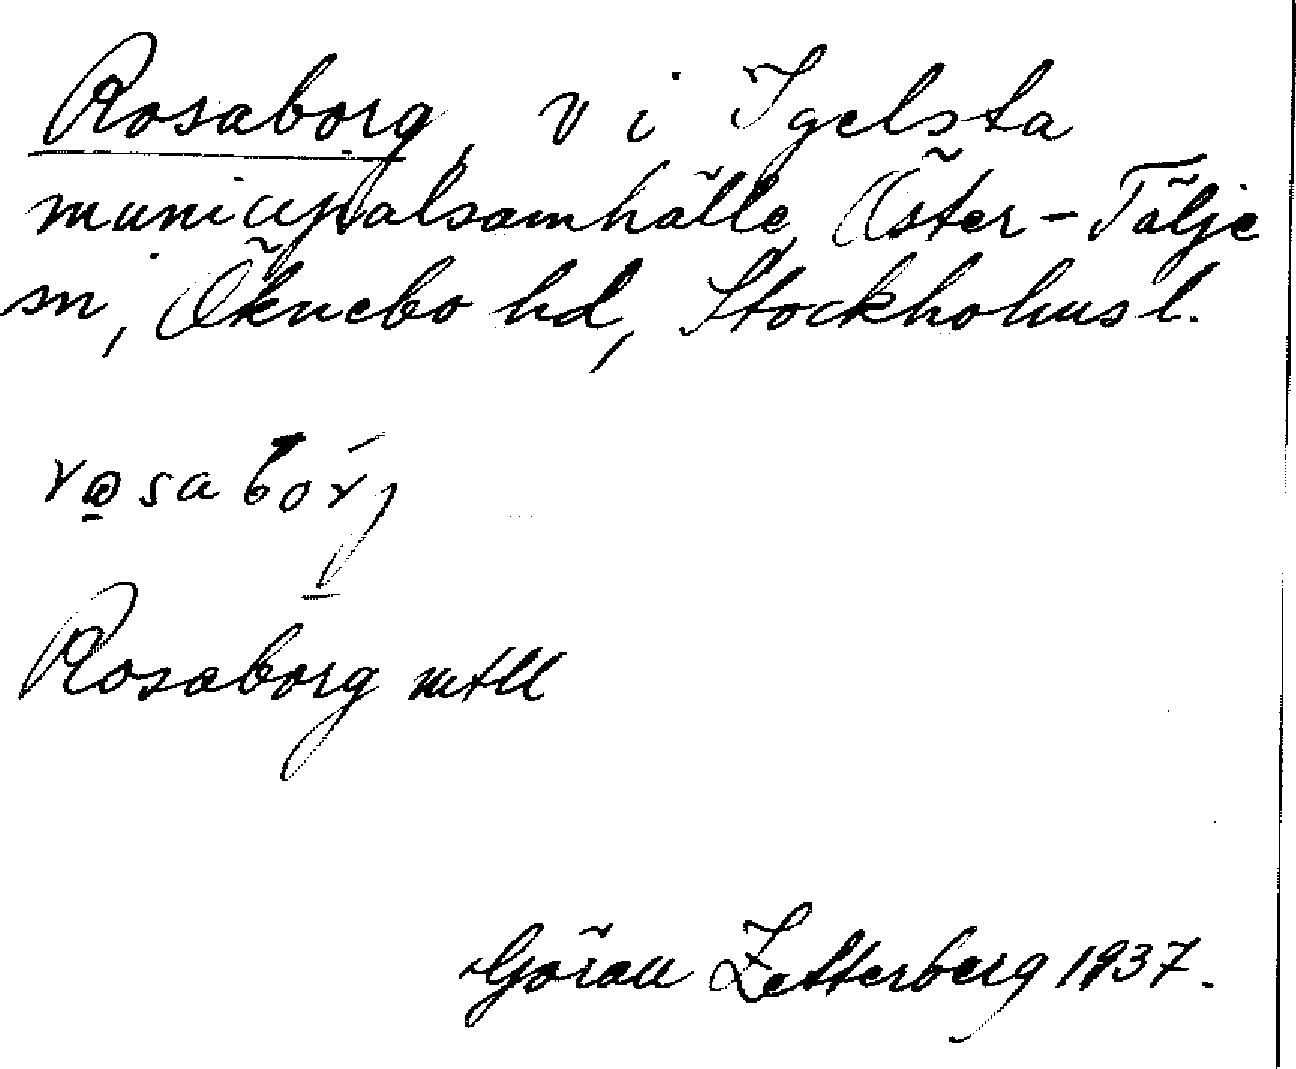 Rosaborg, v i Igelsta
municipalsamhälle, Öster-Tälje
sn, Öknebo hd, Stockholms l.
Rosaborg mtll
Göran Zetterberg 1937.